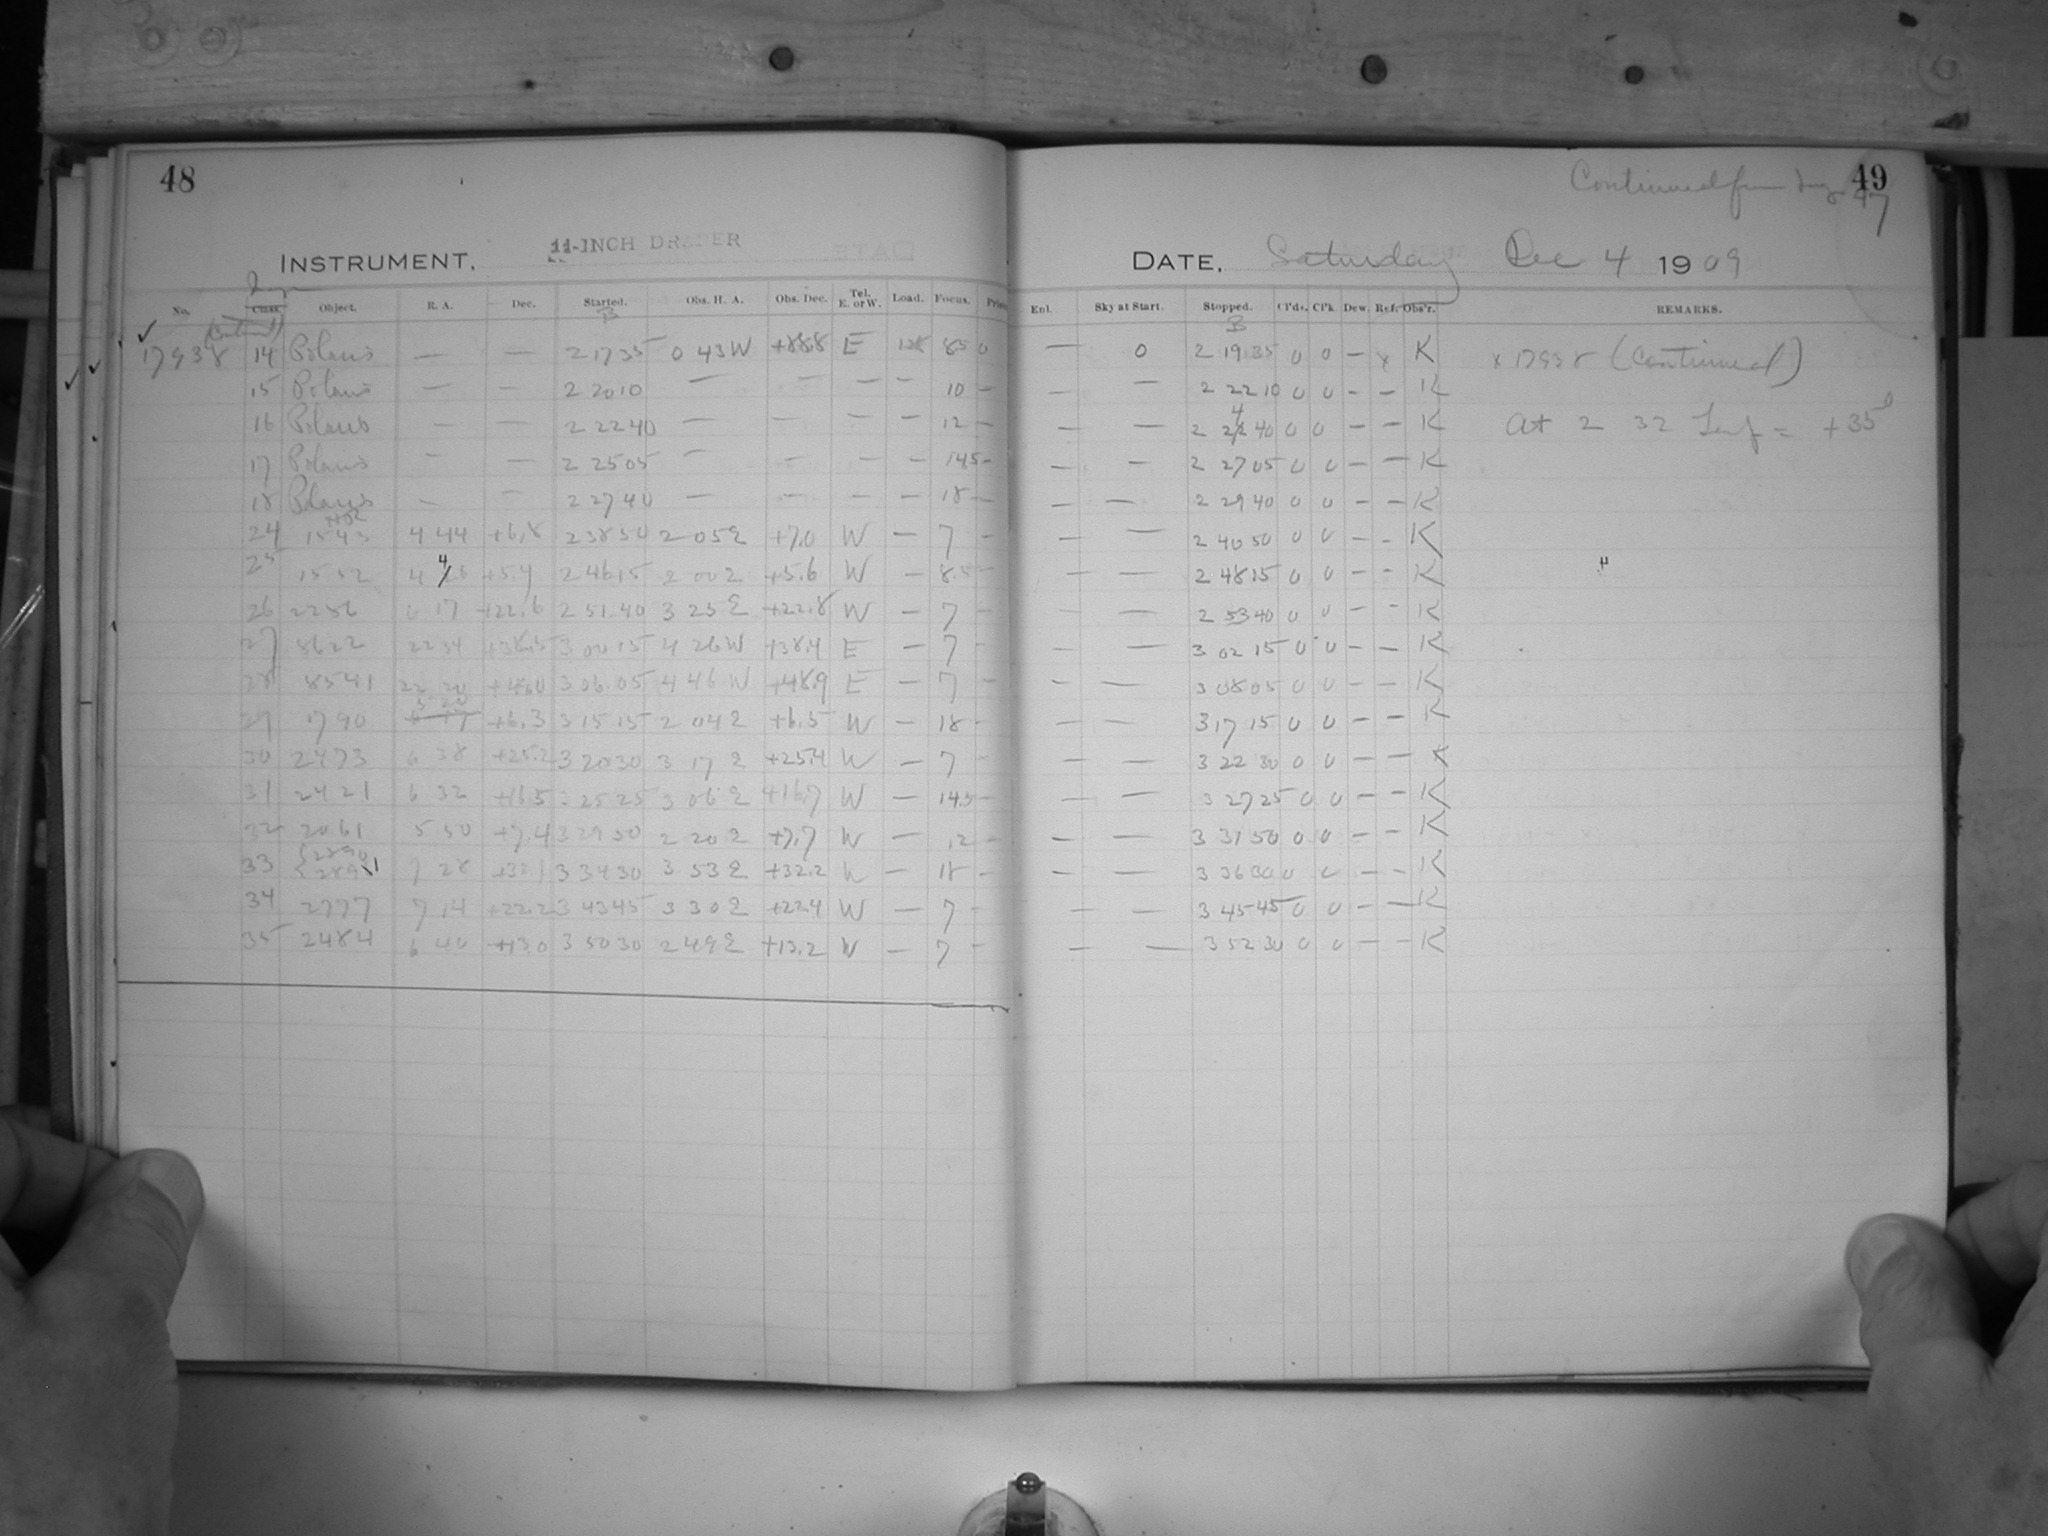 48
INSTRUMENT. 11-INCH DRAPER
No. Class. Object. R. A. Dec. Started. Obs. H. A. Obs. Dec. Tel. E. or W. Load. Focus.
B
17938 14 Polaris — — 2 17 35 0 43 W +88.8 E 85 0
15 Polaris — — 2 20 10 — — — — 10 —
16 Polaris — — 2 22 40 — — — — 12 —
17 Polaris — — 2 25 05 — — — — 14.5 —
18 Polaris — — 2 27 40 — — — — 18 —
24 1543 4 44 +6.8 2 38 50 2 05 E +7.0 W — 7 —
25 1552 4 4 +5.4 2 46 15 2 00 E +5.6 W — 8.5 —
26 2286 6 17 +22.6 2 51 40 3 25 E +22.8 W — 7 —
27 8622 22 34 +38.5 3 00 15 4 26 W +38.4 E — 7 —
28 8541 22 20 3 06 05 4 46 W +48.9 E — 7 —
29 1790 5 20 +6.3 3 15 15 2 04 E +6.5 W — 18 —
30 2473 6 38 +25.2 3 20 30 3 17 E +25.4 W — 7 —
31 2421 6 32 +16.5 3 25 25 3 06 E +16.7 W — 14.5 —
32 2061 5 50 +7.4 3 29 50 2 20 E +7.7 W — 12 —
33 {2890 {2891 7 28 +32.1 3 34 30 3 53 E +32.2 W — 18 —
34 2777 7 14 +22.2 3 43 45 3 30 E +22.4 W — 7 —
35 2484 6 40 +13.0 3 50 30 2 49 E +13.2 W — 7 —
49
Continued from 47
DATE. Saturday Dec 4 1909
Enl. Sky at Start. Stopped. Cl'ds. Cl'k. Dew. Ref. Obs'r. REMARKS.
B
— 0 2 19 35 0 0 — x K x 17938 (Continued)
— — 2 22 10 0 0 — — K
— — 2 24 40 0 0 — — K At 2 32 Temp = +35°
— — 2 27 05 0 0 — — K
— — 2 29 40 0 0 — — K
— — 2 40 50 0 0 — — K
— — 2 48 15 0 0 — — K
— — 2 53 40 0 0 — — K
— — 3 02 15 0 0 — — K
— — 3 08 05 0 0 — — K
— — 3 17 15 0 0 — — K
— — 3 22 30 0 0 — — K
— — 3 27 25 0 0 — — K
— — 3 31 50 0 0 — — K
— — 3 36 30 0 0 — — K
— — 3 45 45 0 0 — — K
— — 3 52 30 0 0 — — K